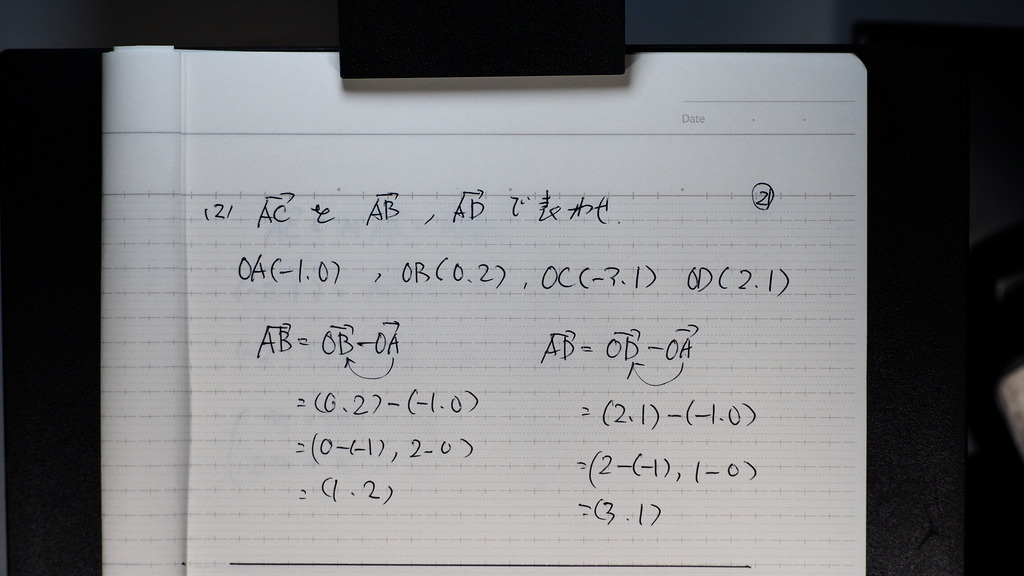 Date
(2) AC を AB , AD で表わせ. ②
OA(-1.0) , OB(0.2) , OC(-3.1) OD(2.1)
AB = OB - OA
= (0.2) - (-1.0)
= (0-(-1), 2-0)
= (1.2)
AD = OD - OA
= (2.1) - (-1.0)
= (2-(-1), 1-0)
= (3.1)